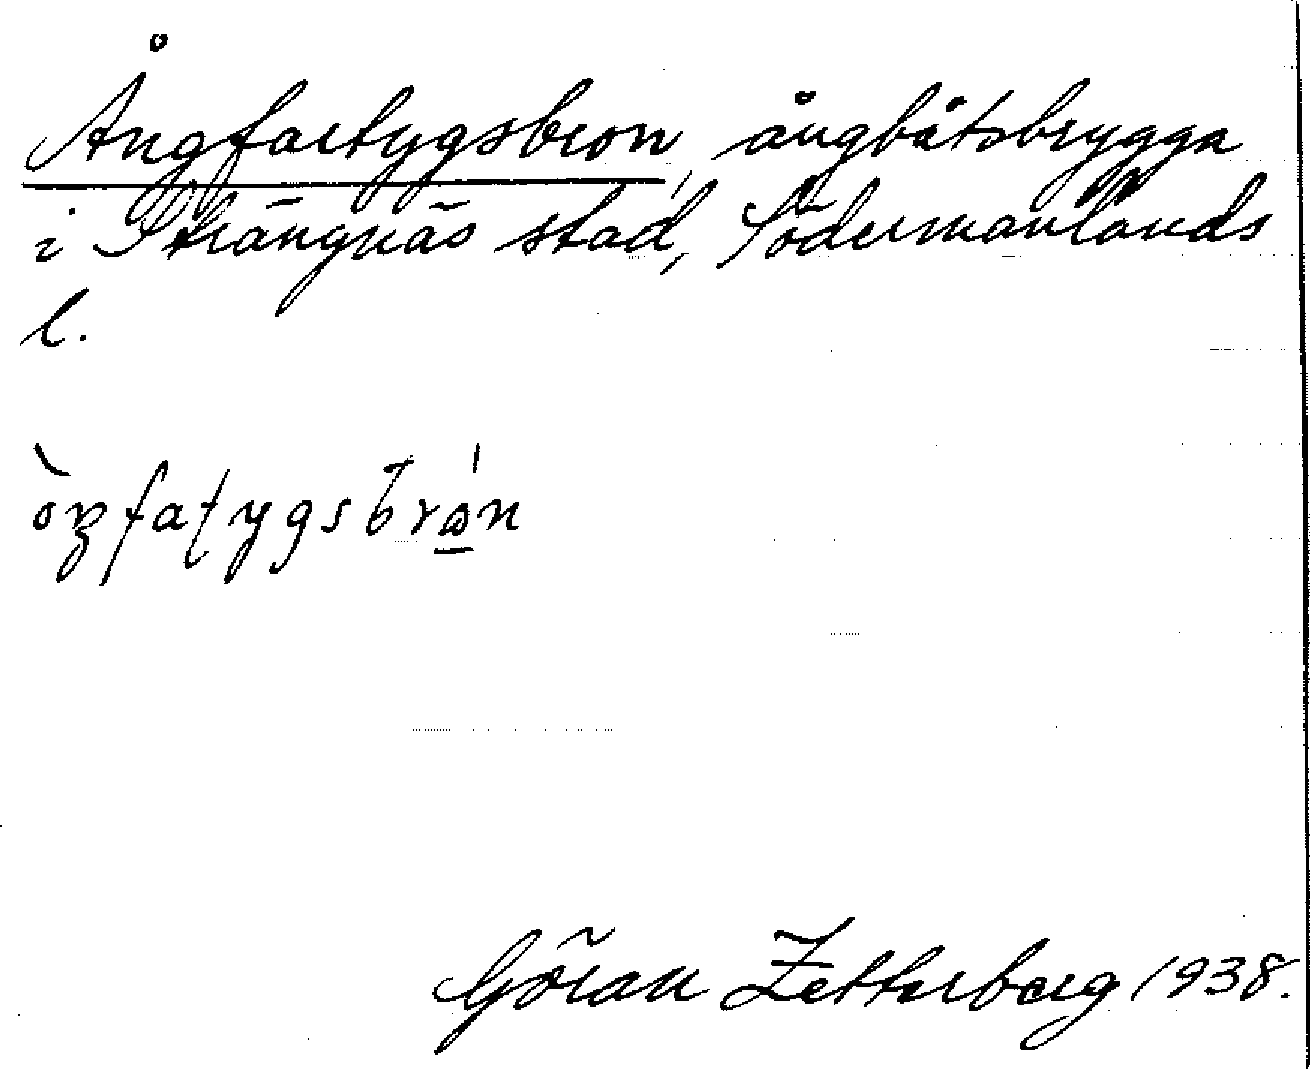 Ångfartygsbron, ångbåtsbrygga
i Strängnäs stad, Södermanlands
l.
òŋfaʈygsbrån
Göran Zetterberg 1938.